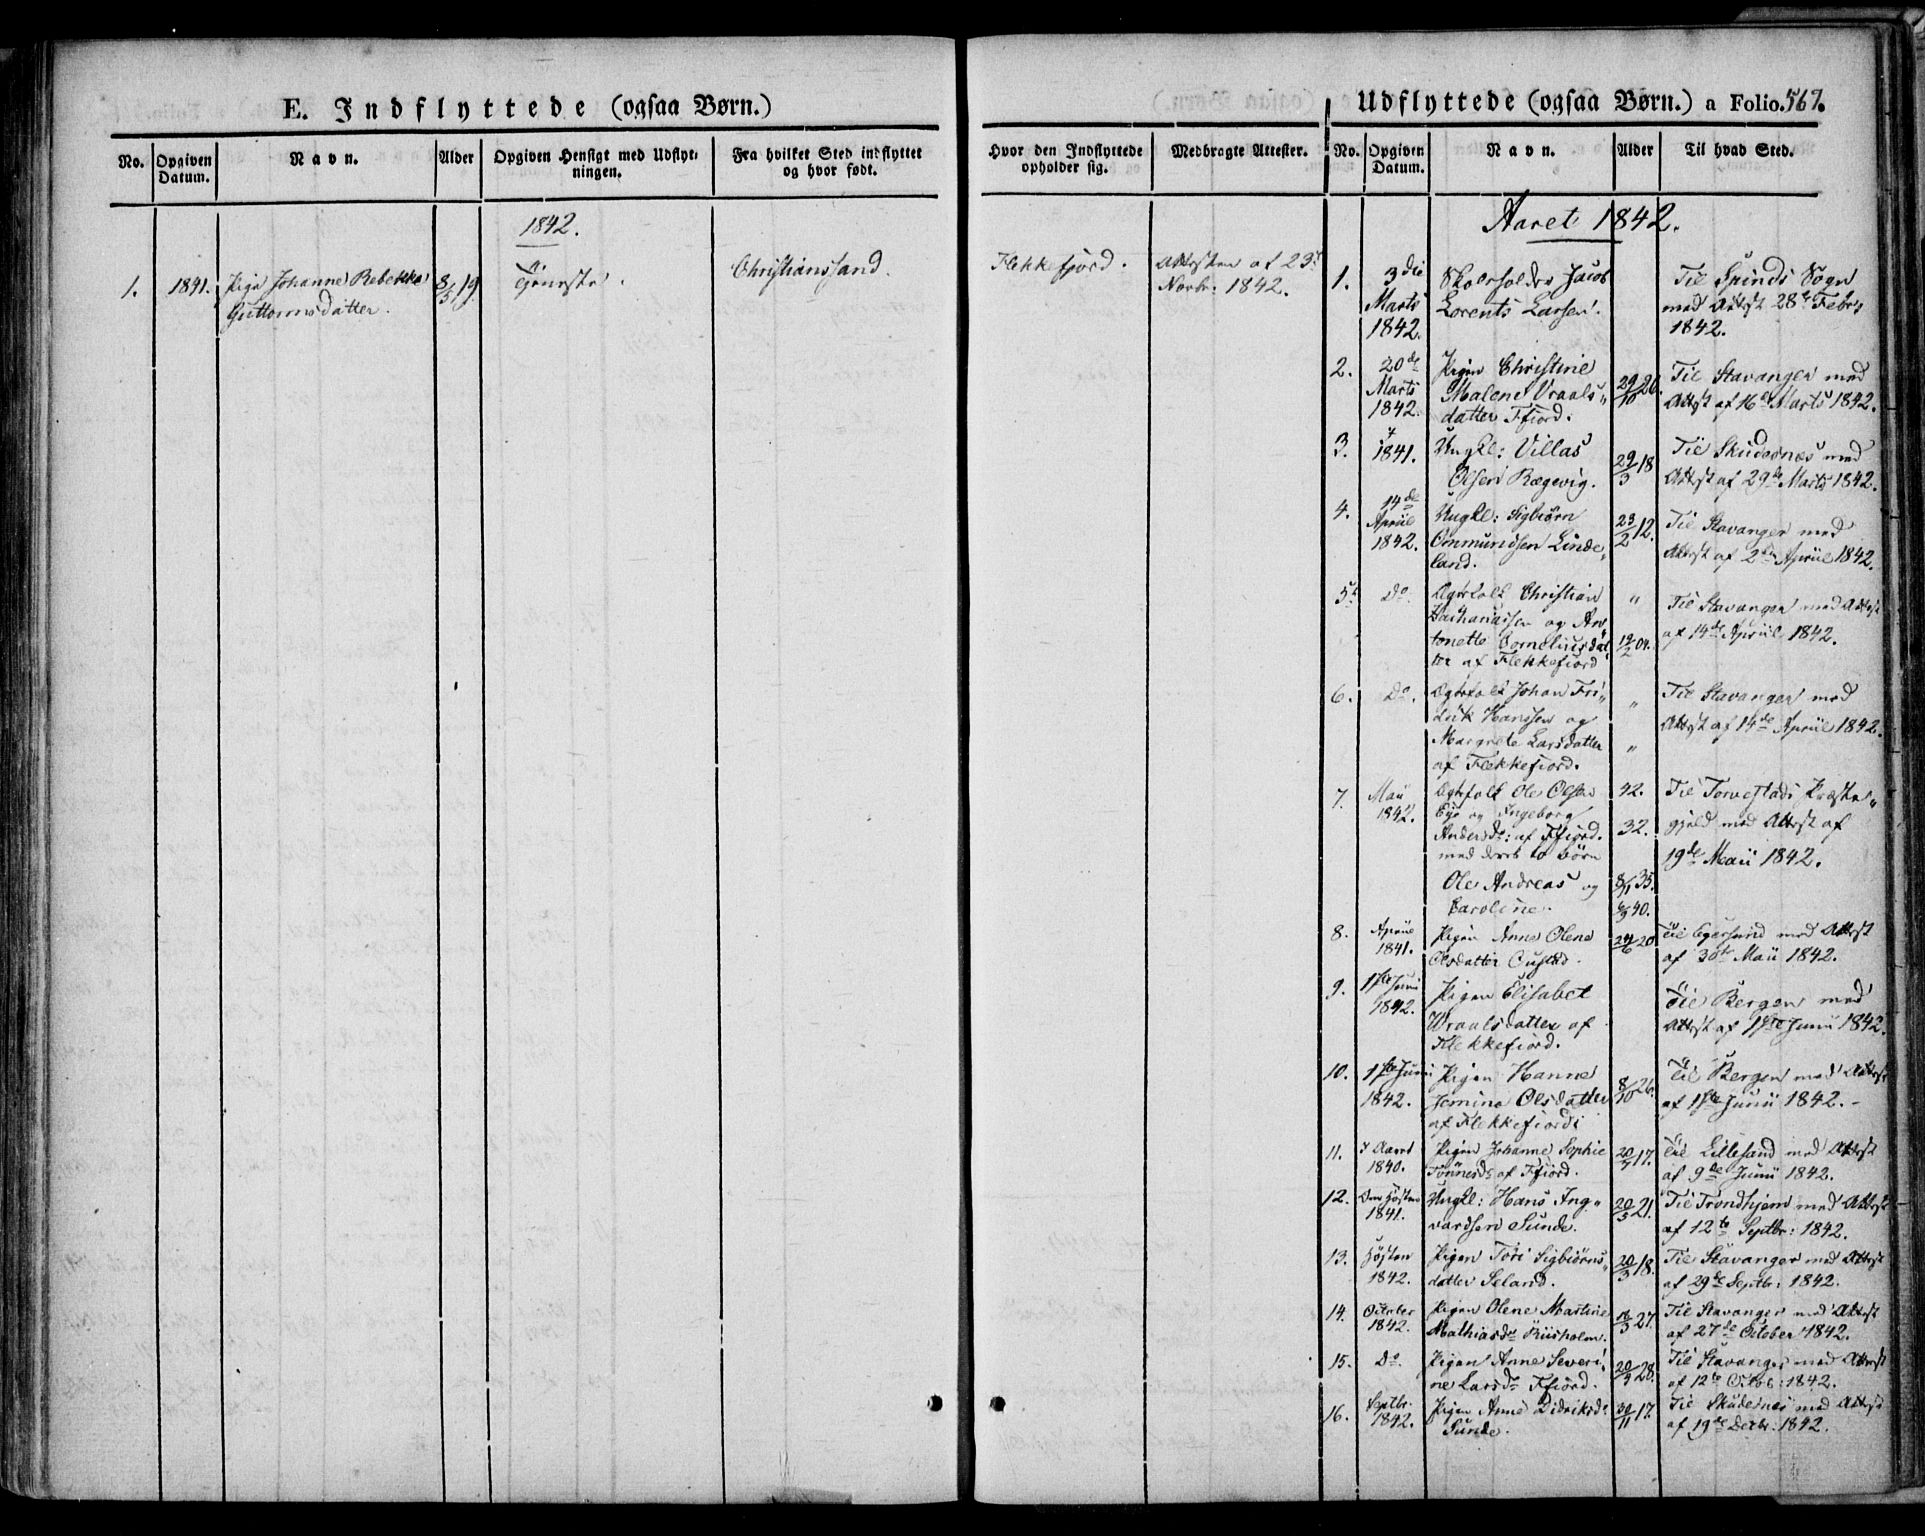 E. Indflyttede (ogsaa Børn.)
No.
Opgiven Datum.
Navn.
Alder
Opgiven Hensigt med Udflyt-
ningen.
Fra hvilket Sted indflyttet
og hvor født.
1842.
1. 1841. Pige Johanne Rebekka 8/5 19 Tjeneste. Christianssand.
Guttormsdatter.
Hvor den Indflyttede
opholder sig.
Medbragte Attester.
Flekkefjord. Attesten af 23de
Novbr: 1842.
Udflyttede (ogsaa Børn.) a Folio. 567.
No.
Opgiven Datum.
Navn.
Alder
Til hvad Sted.
Aaret 1842.
1. 3die Skoleholder Jacob Til Spinds Sogn
Marts Lorents Larsen. med Attest 28de Febr
1842. 1842.
2. 20de Pigen Christine Til Stavanger med
Marts Malene Vraals- 29/10 20. Attest af 16de Marts 1842.
1842. datter Ffiord.
3. 1841. Ungkl: Villas Til Skudesnes med
Olsen Rægevig. 29/3 18 Attest af 29de Marts 1842.
4. 14de Ungkl: Sigbiørn 23/2 12. Til Stavanger med
April Ommundsen Linde- Attest af 2den April 1842.
1842. land.
5. Do. Ægtefolk Christian " Til Stavanger med Attest
Zachariassen og An- af 14de April 1842.
tonette Corneliusdat- 19/2 04.
ter af Flekkefiord
6. Do. Ægtefolk Johan Fri- " Til Stavanger med
drik Hanssen og Attest af 14de April 1842.
Margrete Larsdatter "
af Flekkefiord.
7. Maii Ægtefolk Ole Olsen 42. Til Torvestads Præste-
1842. Eye og Ingeborg gjeld med Attest af
Andersd: af Ffiord. 32. 19de Maii 1842.
med deres to Børn
Ole Andreas og 8/1 35.
Caroline. 6/9 40.
8. April Pigen Anne Olene 24/6 20 Til Egersund med Attest
1841. Olsdatter af 30te Maii 1842.
9. 1ste Juni Pigen Elisabet Til Bergen med
1842. Wraalsdatter af Attest af 1ste Junii 1842.
Flekkefiord.
10. 1ste Juni Pigen Hanne 8/10 26. Til Bergen med Attest
1842. Jemine Olsdatter af 1ste Junii 1842.-
af Flekkefiord
11. I Aaret Pigen Johanne Sophie 20/7 17. Til Lillesand med Attest
1840. Tønnesd: af Ffiord. af 9de Junii 1842.
12. Den Høsten Ungkl: Hans Ing- 20/5 21. Til Trondhjem med Attest
1841. vardsen Sunde. af 12te Septbr: 1842.
13. Høsten Pigen Tori Sigbiørns- 20/3 18. Til Stavanger med Attest
1842. datter Seland. af 29de Septbr: 1842.
14. October Pigen Olene Martine 16/3 27. Til Stavanger med Attest
1842. Mathiasdr Riisholm. af 27de October 1842.
15. Do. Pigen Anne Severi- 20/3 28. Til Stavanger med Attest
ne Larsdr Ffiord. af 12te Octob: 1842.
16. Septbr. Pigen Anne Didriksdr 30/11 17. Til Skudesnes med Attest
1842. Sunde. af 19de Decbr: 1842.